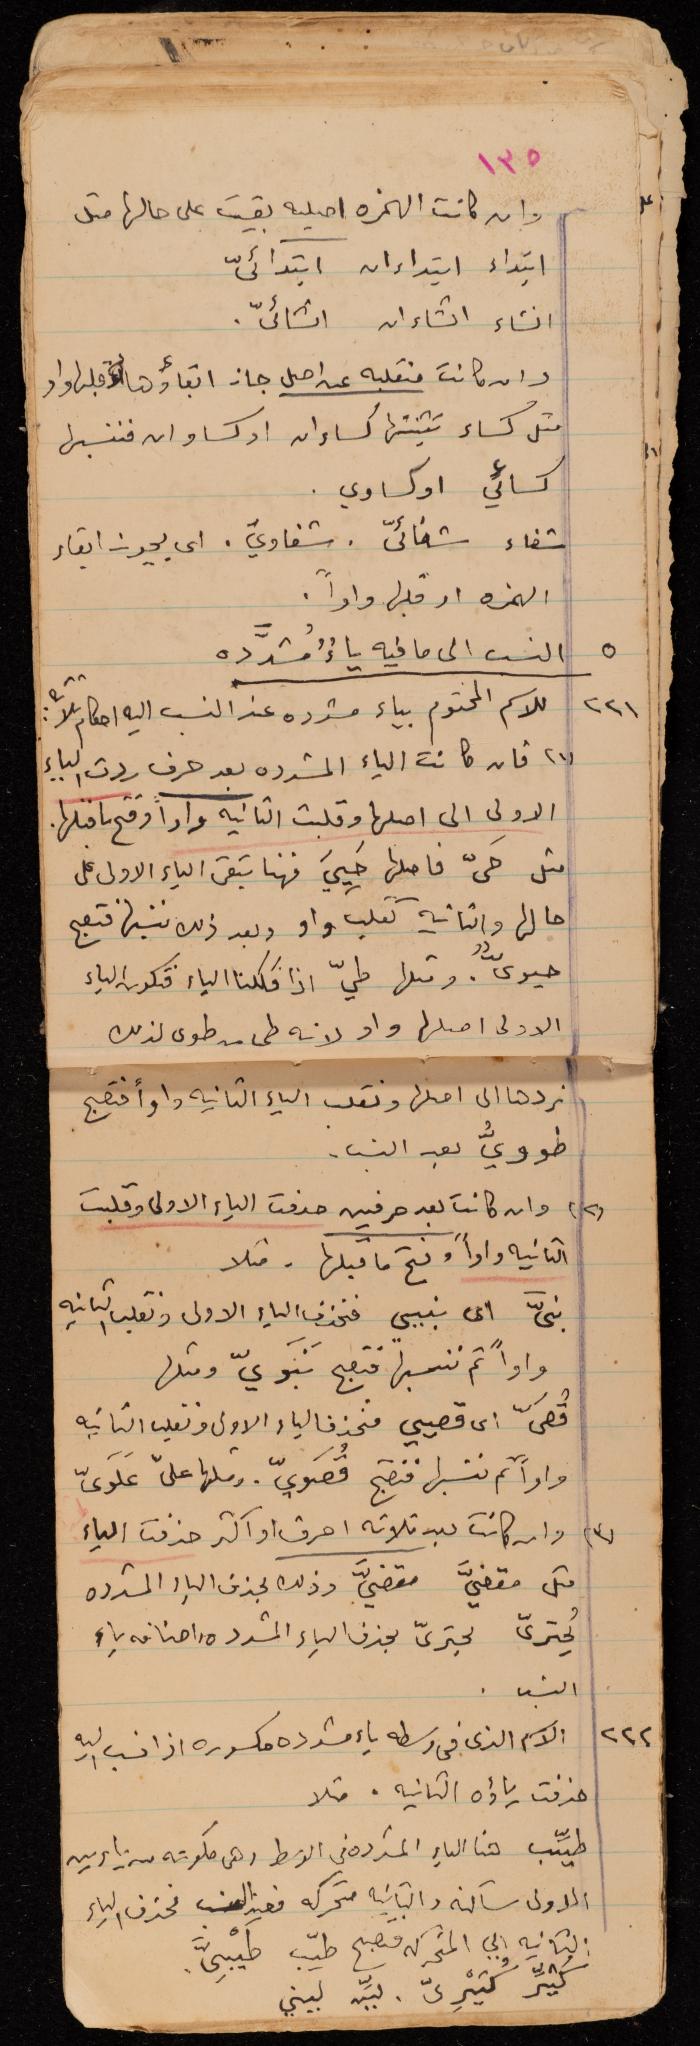 ١٣٥
وان كانت الهمزه اصليه بقيت على حالها مثل
ابتداء ابتداءان ابتدائىّ
انشاء انشاءان انشائىّ .
وان كانت منقلبه عن اصل جاز ابقاؤها او قلبها واو
مثل كساء تثنيتها كساءان او كساوان فننسبها
كسائيّ او كساوي .
شفاء شفائىّ . شفاويّ . اى يجوز ابقاء
الهمزه او قلبها واواً .
٥ النسب الى ما فيه ياءُ مُشدَّده
٢٢١ للاسم المختوم بياء مشدده عند النسب اليه احكام ثلاثه :
(١) فان كانت الياء المشدده بعد حرف ردت الياء
الاولى الى اصلها وقلبت الثانيه واواً وفتح ما قبلها.
مثل حَىّ فاصلها حَيِيَ فهنا تبقى الياء الاولى على
حالها والثانيه تقلب واو وبعد ذلك ننسبها فتصبح
حيوىّ . ومثلها طيّ اذا فككنا الياء فتكون الياء
الاولى اصلها واو لانه طى من طوى لذلك
نردها الى اصلها ونقلب الياء الثانيه واواً فتصبح
طوويُّ بعد النسب .
(٢) وان كانت بعد حرفين حذفت الياء الاولى وقلبت
الثانيه واواً وفتح ما قبلها . مثلا
نبىّ اى نبيي فنحذف الياء الاولى ونقلب الثانيه
واواً ثم ننسبها فتصبح نَبَويّ ومثلها
قُصَىّ اى قصيي فنحذف الياء الاولى ونقلب الثانيه
واواً ثم ننسبها فتصبح قُصَويّ . ومثلها علىّ عَلَوىّ
(٣) وان كانت بعد ثلاثه احرف او اكثر حذفت الياء
مثل مقضيَّ مقضيَّ وذلك بحذف الياء المشدده
بُحترىّ بحترىّ بحذف الياء المشدده واضافه ياء
النسب .
٢٢٢ الاسم الذى فى وسطه ياء مشدده مكسوره اذا نسب اليه
حذفت ياؤه الثانيه . مثلا
طيِّب هنا الياء المشدده فى الوسط وهى مكونه من ياءين
الاولى ساكنه والثانيه متحركه فعند النسب نحذف الياء
الثانيه اي المتحركه فتصبح طيّب طَيْبِىَّ .
كُثيِّر كُثَيْرِىّ . ليّن ليني